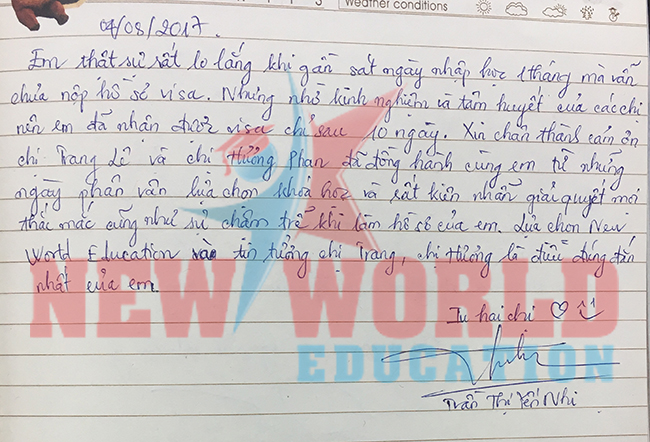 Weather conditions
04/08/2017.
Em thật sự rất lo lắng khi gần sát ngày nhập học 1 tháng mà vẫn
chưa nộp hồ sơ visa. Nhưng nhờ kinh nghiệm và tâm huyết của các chị
nên em đã nhận được visa chỉ sau 10 ngày. Xin chân thành cảm ơn
chị Trang Lê và chị Hương Phan đã đồng hành cùng em từ những
ngày phân vân lựa chọn khoá học và rất kiên nhẫn giải quyết mọi
thắc mắc cũng như sự chậm trễ khi làm hồ sơ của em. Lựa chọn New
World Education và tin tưởng chị Trang, chị Hương là điều đúng đắn
nhất của em.
NEW WORLD
EDUCATION
Iu hai chị
Trần Thị Yến Nhi